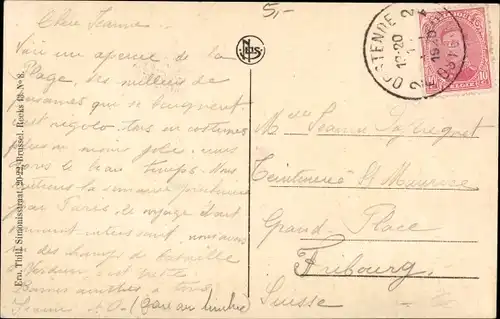 5,-
Chère Jeanne
Voici un aperçu de la
Plage, des milliers de
personnes qui se baignent
c'est rigolo, tous en costumes
plus ou moins jolis, nous
avons le beau temps. Nous
rentrons la semaine prochaine
par Paris, le voyage étant
intéressant, nous avons
vu des champs de bataille
Verdun, c'est
Bonnes amitiés à tous
(gare au timbre)
NELS
OOSTENDE 2
19-20
OSTENDE
10
Mlle Jeanne
Teinturerie St Maurice
Grand-Place
Fribourg
Suisse
Ern. Thill, Simonisstraat, 20-22, Brussel. Reeks 13. N° 8.